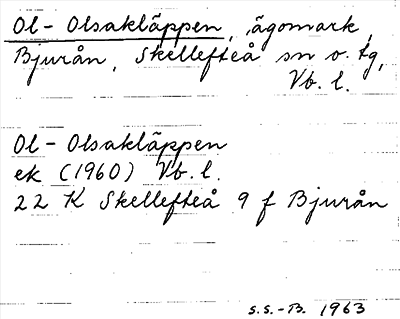 Ol-Olsakläppen, ägomark,
Bjurån, Skellefteå sn o. tg,
Vb. l.
Ol-Olsakläppen
ek (1960) Vb. l.
22 K Skellefteå 9 f Bjurån
S.S.-B. 1963